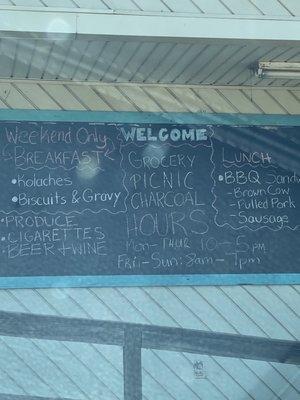 Weekend Only
BREAKFAST
• Kolaches
• Biscuits & Gravy
- PRODUCE
- CIGARETTES
- BEER + WINE
WELCOME
GROCERY
PICNIC
CHARCOAL
HOURS
Mon-Thur 10-5pm
Fri-Sun: 8am-7pm
LUNCH
• BBQ Sandw
- Brown Cow
- Pulled Pork
- Sausage